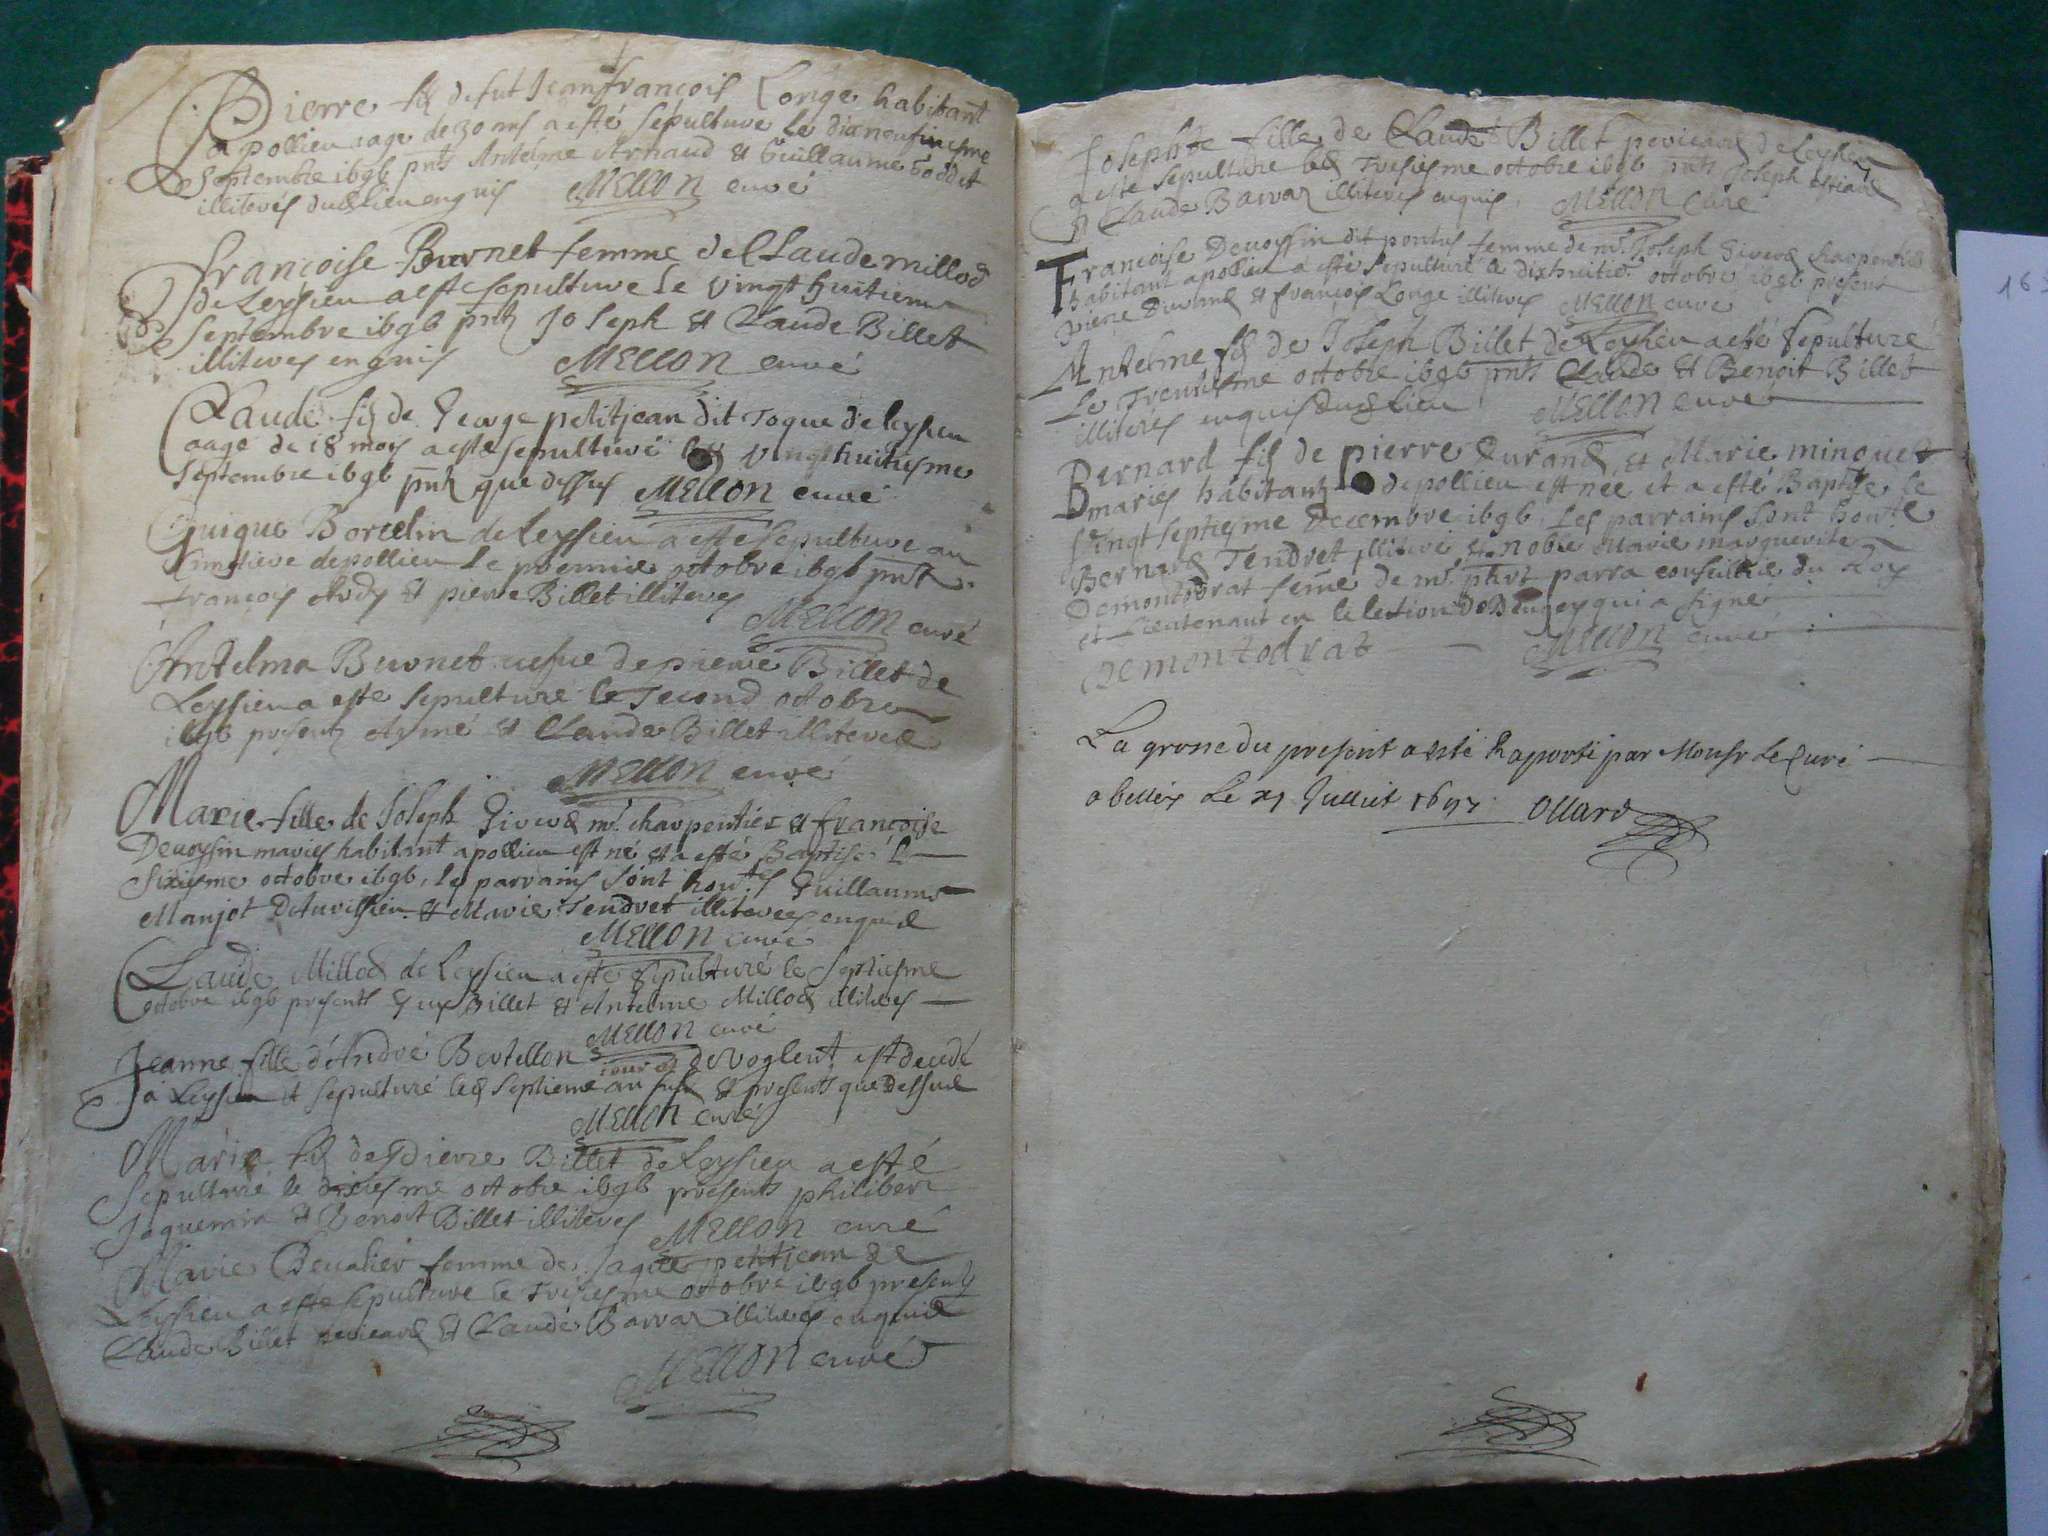 Pierre fils defut Jean françois Longe habitant
a pollieu aage de 30 ans a esté sépulturé le dixneufuiesme
septembre 1696 pnts Antelme Arnaud et Guillaume Goddet
illiterés dudlieu enquis MELLON curé
françoise Burnet femme de Claude millod
de Leyssieu a esté sepulture le vingt huitiem
septembre 1696 pnts Joseph et Claude Billet
illiteres enquis MELLON curé
Claude fils de George petitjean dit Toque de leysieu
aagé de 18 moys a esté sepulturé led vingt huitiesme
septembre 1696 pnts que dessus MELLON curé
Guigue Borcelin de leyssieu a esté sepulture au
simetiere de pollieu le premier octobre 1696 pnts
françois et pierre Billet illiteres
MELLON curé
Antelma Burnet vefue de pierre Billet de
Leyssieu a esté sepulturé le second octobre
1696 presents Aymé et Claude Billet illiteres
MELLON curé
Marie fille de Joseph Giverd mr charpentier et françoise
Devoysin mariés habitant a pollieu est né et a esté Baptisé le
sixiesme octobre 1696, les parrains sont hon.tes Guillaume
Manjot et Marie Tendret illiterees enquis
MELLON curé
Claude Millod de Leysieu a esté sepulturé le septiesme
octobre 1696 presents Guy Billet et Antelme Millod illiteres
MELLON curé
Jeanne fille d'André Bertellon de voglent est decedé
a Leysieu et sepulturé led septieme jour et an susd et presents que dessus
MELLON curé
Marie fils de Pierre Billet de Leyssieu a esté
sepulturé le dixiesme octobre 1696 présents philibert
Jaquemin et Benoit Billet illiteres MELLON curé
Marie Chevalier femme de Jaque petitjean de
Leyssieu a esté sepulture le Tresiesme octobre 1696 presents
Claude Billet pevieard et Claude Barraz illiteres enquis
MELLON curé
Josephte fille de Claude Billet pevieard de leyssieu
a esté sepulture led Tresiesme octobre 1696 pnts Joseph
et Claude Barraz illiteres enquis. MELLON Curé
Françoise Devoyssin dit pontus femme de mr Joseph Giverd charpentier
habitant a pollieu a esté sepulturé le dixhuitie octobre 1696 présent
pierre Durand et françois Longe illiteres MELLON curé
Antelme fils de Joseph Billet de Leyssieu a esté sepulturé
Le Trentiesme octobre 1696 pnts Claude et Benoit Billet
illiterés enquis dud lieu MELLON curé
Bernard fils de pierre Durand et Marie minguet
mariés habitants de pollieu est nee et a esté Baptise le
vingt septiesme Decembre 1696. Les parrains sont hon.te
Bernard Tendret illiteré et noble Marie marguerite
Demontodrat feme de mr phirt parra conseillier du Roy
et Lieutenant en lelection de Beugey qui a signe
Demontodrat MELLON curé
La grosse du present a esté Raporté par Monsr le Curé
a belley Le 21 Juillet 1697 Ollard